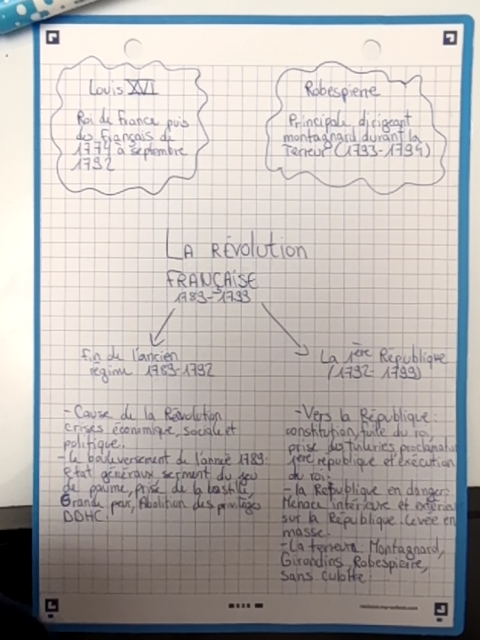 Louis XVI
Roi de france puis
des français de
1774 à septembre
1792
Robespierre
Principale dirigeant
montagnard durant la
Terreur (1793-1794)
LA RÉVOLUTION
FRANÇAISE
1789-1799
fin de l'ancien
régime 1789-1792
La 1ère République
(1792-1799)
- Cause de la Révolution
crises économique, sociale et
politique.
- Le bouleversement de l'année 1789:
Etat généraux, serment du jeu
de paume, prise de la bastille,
Grande peur, Abolition des privilèges
DDHC.
- Vers la République:
constitution, fuite du roi,
prise des tuileries, proclamation
1ère république et exécution
du roi.
- la République en danger:
Menace intérieure et extérieure
sur la République. Levée en
masse.
- La terreur: Montagnard,
Girondins, Robespierre,
sans culotte.